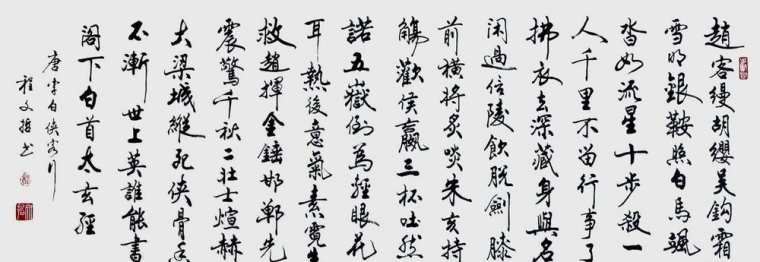 趙客縵胡纓吳鉤霜
雪明銀鞍照白馬颯
沓如流星十步殺一
人千里不留行事了
拂衣去深藏身與名
閑過信陵飲脫劍膝
前橫將炙啖朱亥持
觴勸侯嬴三杯吐然
諾五嶽倒為輕眼花
耳熱後意氣素霓生
救趙揮金錘邯鄲先
震驚千秋二壯士煊赫
大梁城縱死俠骨香
不慚世上英誰能書
閣下白首太玄經
唐李白俠客行
程文書